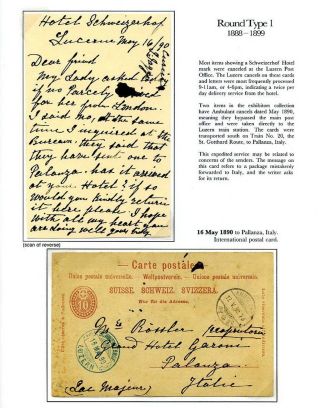 Hotel Schweizerhof
Lucerne May 16/90
Dear friend
My Lady asked me
if no Parcels
for her from London.
I said no, at the same
time I inquired at the
Bureau; they said that
they have sent one to
Palanza. has it arrived
at your Hotel? if so
would you kindly return
it here please. I hope
with all my heart you
are doing well, your
(scan of reverse)
Round Type 1
1888 – 1899
Most items showing a Schweizerhof Hotel
mark were canceled at the Luzern Post
Office. The Luzern cancels on these cards
and letters were most frequently processed
9-11am, or 4-6pm, indicating a twice per
day delivery service from the hotel.
Two items in the exhibition collection
have Ambulant cancels dated May 1890,
meaning they bypassed the main post
office and were taken directly to the
Luzern train station. The cards were
transported south on Train No. 20, the
St. Gotthard Route, to Pallanza, Italy.
This expedited service may be related to
concerns of the senders. The message on
this card refers to a package mistakenly
forwarded to Italy, and the writer asks
for its return.
16 May 1890 to Pallanza, Italy.
International postal card.
Carte postale
Union postale universelle. – Weltpostverein. – Unione postale universale
SUISSE. SCHWEIZ. SVIZZERA.
Nur für die Adresse.
Rossler
Grand Hotel Garoni
Palanza
(Lac Majeur) Italie